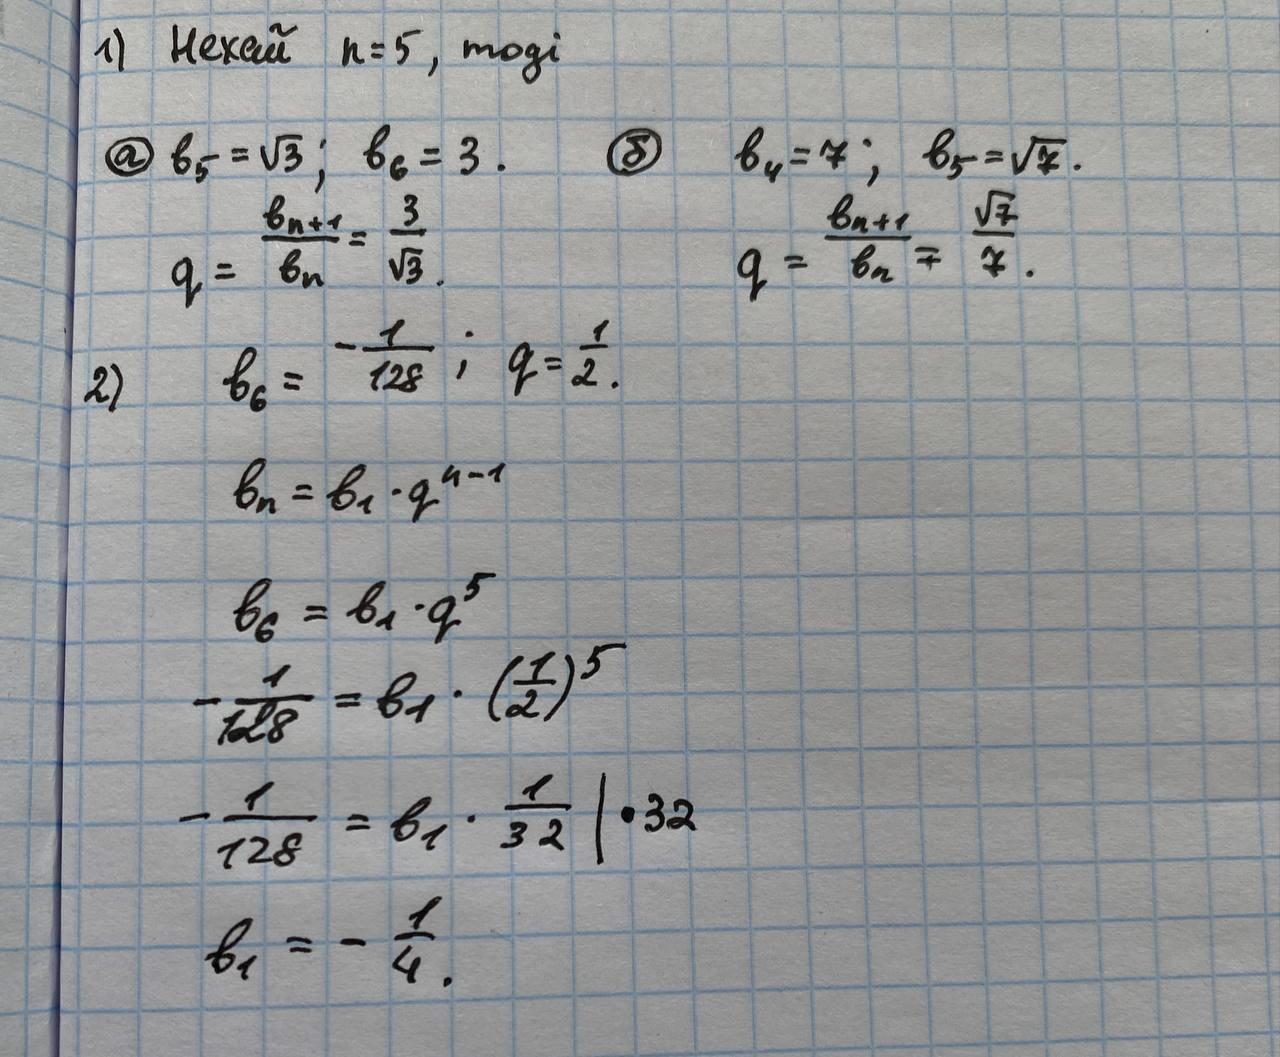 1) Нехай n=5, тоді
а) b₅ = √3; b₆ = 3. б) b₄ = 7; b₅ = √7.
q = bₙ₊₁/bₙ = 3/√3. q = bₙ₊₁/bₙ = √7/7.
2) b₆ = -1/128; q = 1/2.
bₙ = b₁ · qⁿ⁻¹
b₆ = b₁ · q⁵
-1/128 = b₁ · (1/2)⁵
-1/128 = b₁ · 1/32 | · 32
b₁ = - 1/4.